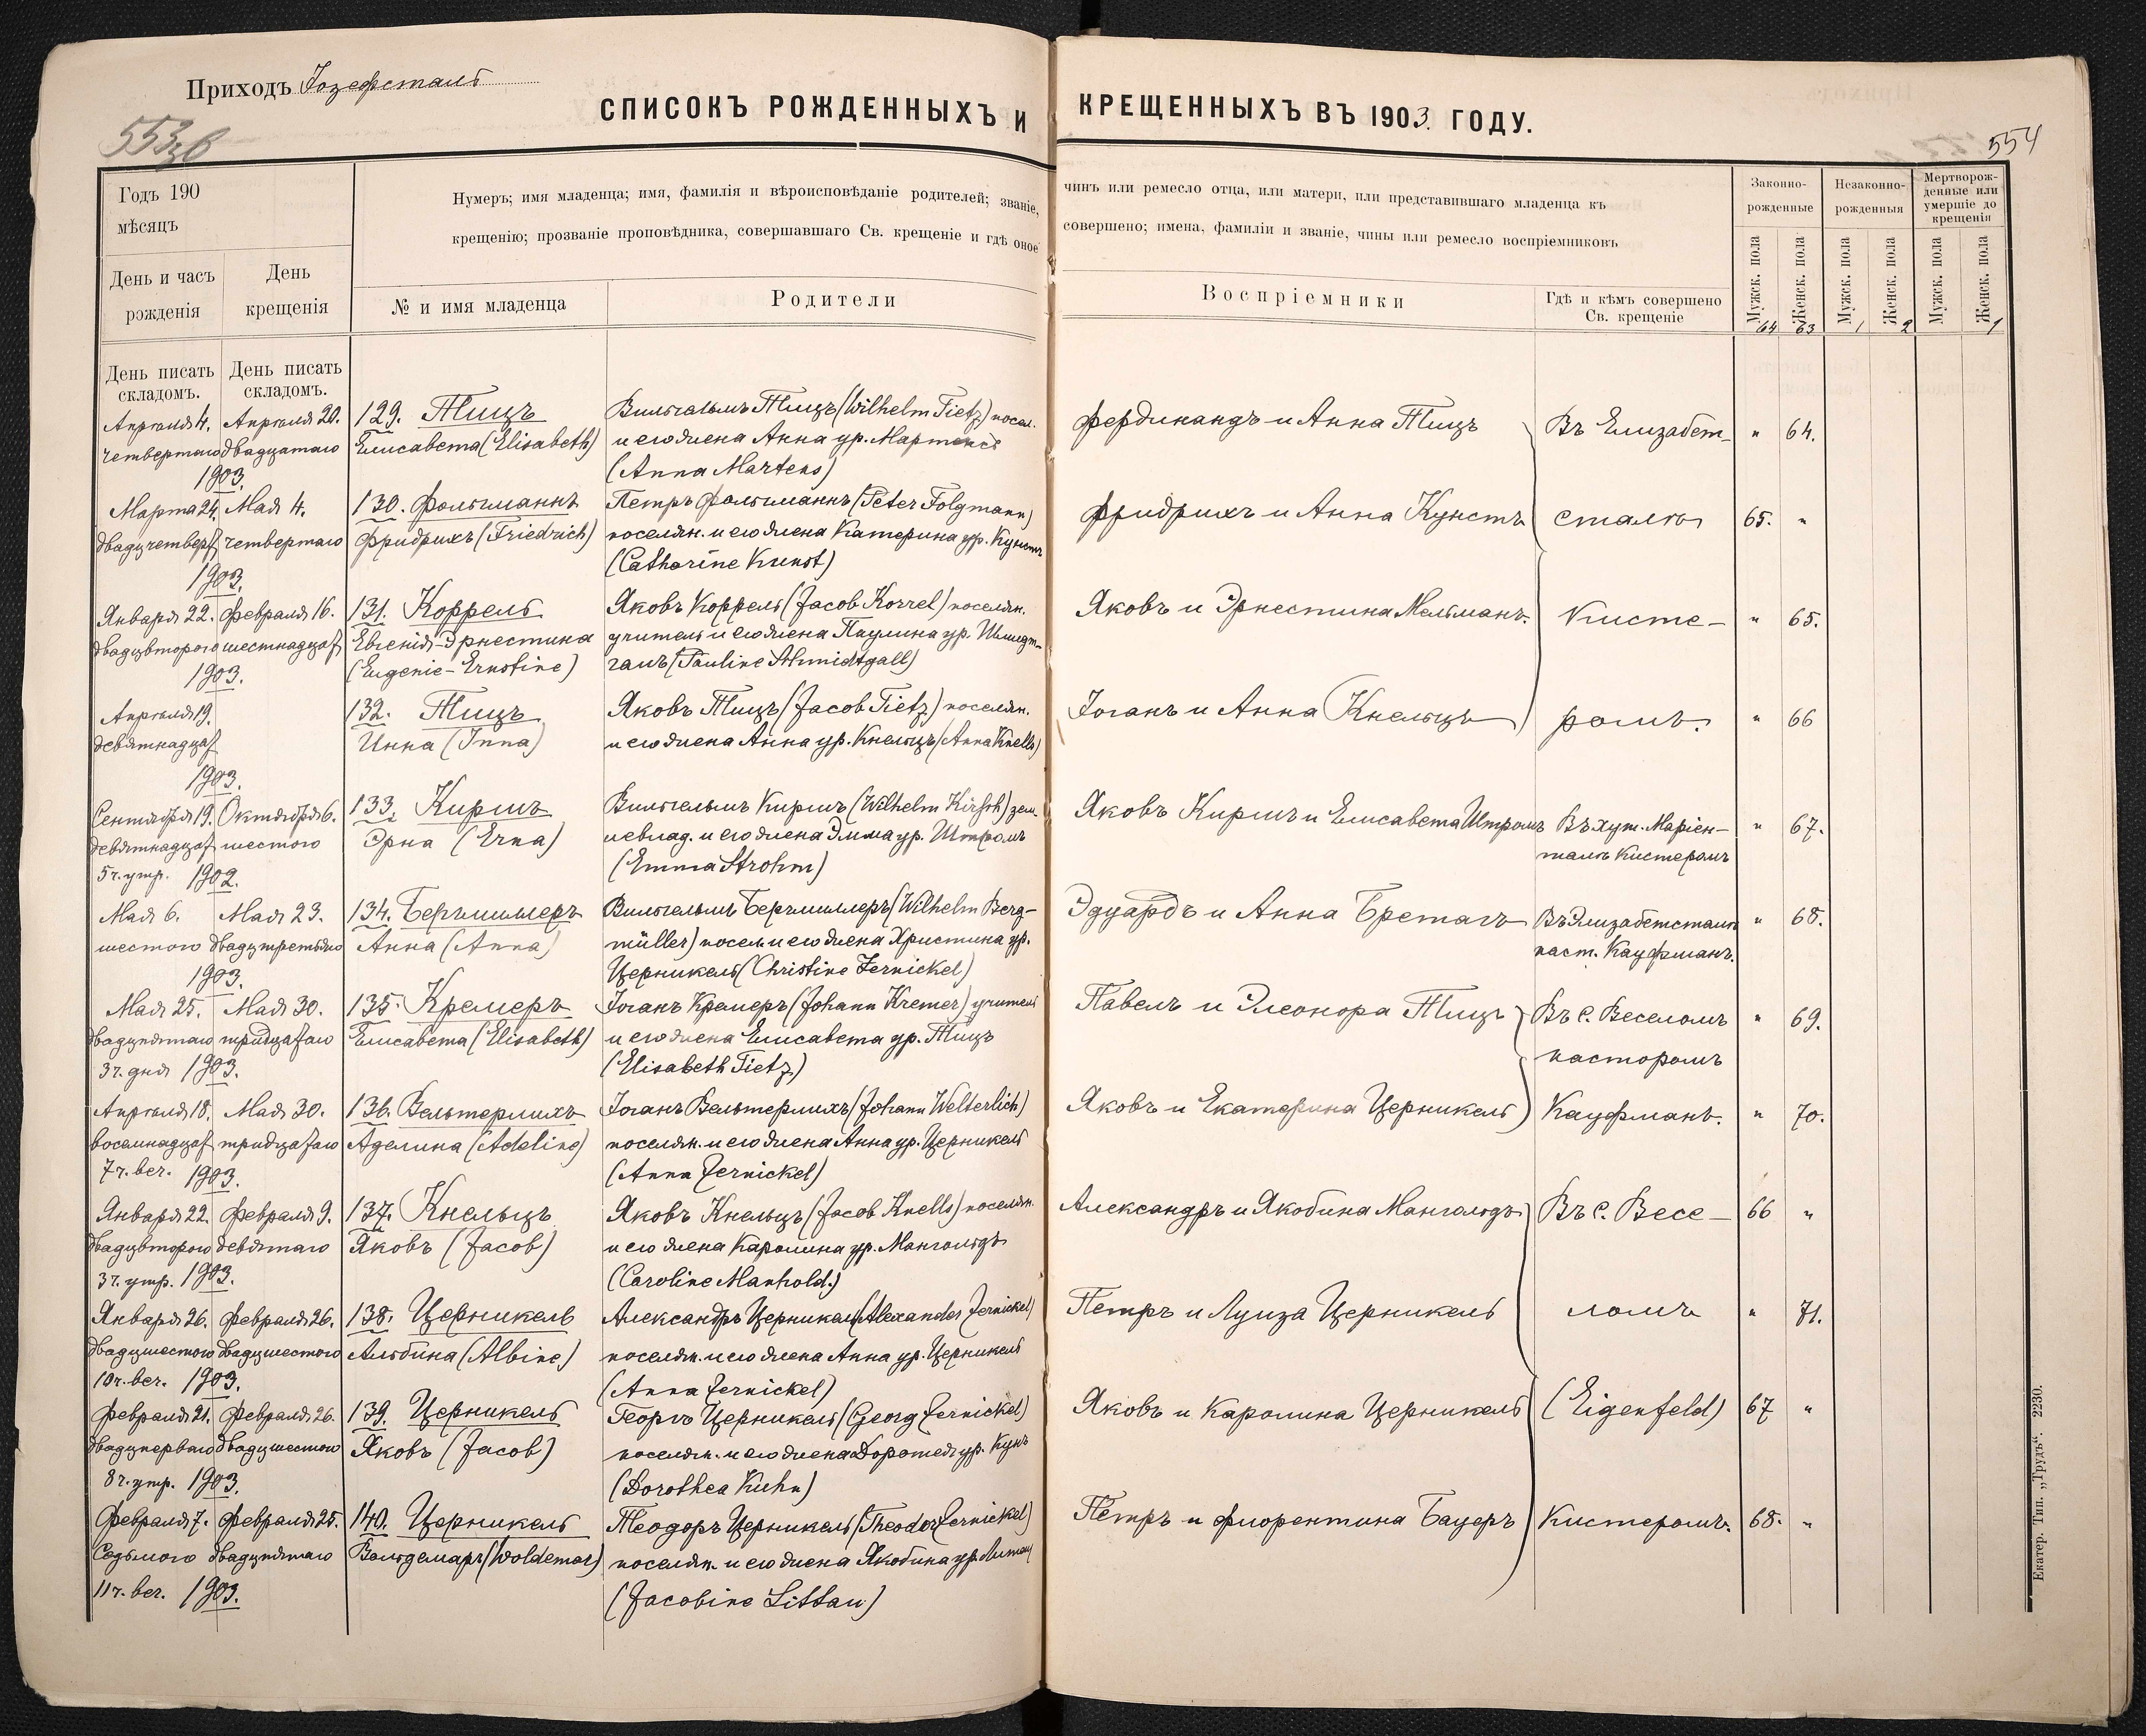 Приходъ Іозефсталь
СПИСОКЪ РОЖДЕННЫХЪ И КРЕЩЕННЫХЪ ВЪ 1903. ГОДУ.
553
554
Годъ 190
мѣсяцъ
Нумеръ; имя младенца; имя, фамилія и вѣроисповѣданіе родителей; званіе, чинъ или ремесло отца, или матери, или представившаго младенца къ
крещенію; прозваніе проповѣдника, совершавшаго Св. крещеніе и гдѣ оное совершено; имена, фамиліи и званіе, чины или ремесло воспріемниковъ
Законно-
рожденные
Незаконно-
рожденныя
Мертворож-
денные или
умершіе до
крещенія
День и часъ
рожденія
День
крещенія
№ и имя младенца
Родители
Воспріемники
Гдѣ и кѣмъ совершено
Св. крещеніе
Мужск. пола
Женск. пола
Мужск. пола
Женск. пола
Мужск. пола
Женск. пола
64 63 1 2 1
День писать
складомъ.
День писать
складомъ.
Апрѣля 4. Апрѣля 20. 129. Тицъ Вильгельмъ Тицъ (Wilhelm Tietz) посел. Фердинандъ и Анна Тицъ Въ Елизабет- " 64.
четвертаго двадцатаго Елисавета (Elisabeth) и его жена Анна ур. Мартенсъ
1903. (Anna Martens)
Марта 24. Мая 4. 130. Фольгманнъ Петръ Фольгманнъ (Peter Folgmann) Фридрихъ и Анна Кунстъ сталѣ 65. "
двадцчетверт четвертаго Фридрихъ (Friedrich) поселян. и его жена Катерина ур. Кунстъ
1903. (Catharine Kunst)
Января 22. Февраля 16. 131. Коррель Яковъ Коррель (Jacob Korrel) поселян. Яковъ и Эрнестина Мельманъ. Кисте- " 65.
двадцвторого шестнадцат Евгенія-Эрнестина учитель и его жена Паулина ур. Шмидт-
1903. (Eugenie-Ernstine) галь (Pauline Schmidtgall)
Апрѣля 19. 132. Тицъ Яковъ Тицъ (Jacob Tietz) поселян. Іоганъ и Анна Кнельцъ ромъ. " 66
девятнадцат Инна (Inna) и его жена Анна ур. Кнельцъ (Anna Knells)
1903.
Сентября 19. Октября 6. 133. Киршъ Вильгельмъ Киршъ (Wilhelm Kirsch) зем- Яковъ Киршъ и Елисавета Штромъ Въ хут. Маріен- " 67.
девятнадцат шестого Эрна (Erna) левлад. и его жена Эмма ур. Штромъ талѣ Кистеромъ
5 ч. утр. 1902. (Emma Strohm)
Мая 6. Мая 23. 134. Бергмиллеръ Вильгельмъ Бергмиллеръ (Wilhelm Berg- Эдуардъ и Анна Бретагъ Въ Элизабетсталѣ " 68.
шестого двадцтретьяго Анна (Anna) müller) посел. и его жена Христина ур. паст. Кауфманъ.
1903. Церникель (Christine Zernickel)
Мая 25. Мая 30. 135. Кремеръ Іоганъ Кремеръ (Johann Kremer) учитель Павелъ и Элеонора Тицъ Въ с. Веселомъ " 69.
двадцпятаго тридцатаго Елисавета (Elisabeth) и его жена Елисавета ур. Тицъ пасторомъ
3 ч. дня 1903. (Elisabeth Tietz)
Апрѣля 18. Мая 30. 136. Вельтерлихъ Іоганъ Вельтерлихъ (Johann Welterlich) Яковъ и Екатерина Церникель Кауфманъ. " 70.
восемнадцат тридцатаго Аделина (Adeline) поселян. и его жена Анна ур. Церникель
7 ч. веч. 1903. (Anna Zernickel)
Января 22. Февраля 9. 137. Кнельцъ Яковъ Кнельцъ (Jacob Knells) поселян. Александръ и Якобина Мангольдъ Въ с. Весе- 66 "
двадцвторого девятаго Яковъ (Jacob) и его жена Каролина ур. Мангольдъ
3 ч. утр. 1903. (Caroline Manhold.)
Января 26. Февраля 26. 138. Церникель Александръ Церникель (Alexander Zernickel) Петръ и Луиза Церникель ломъ " 71.
двадцшестого двадцшестого Альбина (Albine) поселян. и его жена Анна ур. Церникель
10 ч. веч. 1903. (Anna Zernickel)
Февраля 21. Февраля 26. 139. Церникель Георгъ Церникель (Georg Zernickel) Яковъ и Каролина Церникель (Eigenfeld) 67 "
двадцперваго двадцшестого Яковъ (Jacob) поселян. и его жена Доротея ур. Кунъ
8 ч. утр. 1903. (Dorothea Kuhn)
Февраля 7. Февраля 25. 140. Церникель Теодоръ Церникель (Theodor Zernickel) Петръ и Флорентина Бауеръ Кистеромъ. 68. "
Седьмого двадцпятаго Вольдемаръ (Woldemar) поселян. и его жена Якобина ур. Литау
11 ч. веч. 1903. (Jacobine Littau)
Екатер. Тип. „Трудъ“. 2230.